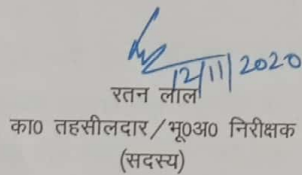 12/11/2020
रतन लाल
का0 तहसीलदार/भू0अ0 निरीक्षक
(सदस्य)